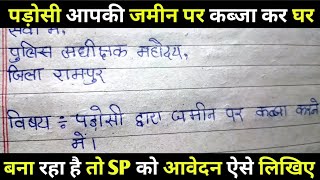 पड़ोसी आपकी जमीन पर कब्जा कर घर
सेवा में,
पुलिस अधीक्षक महोदय,
जिला रामपुर
विषय :- पड़ोसी द्वारा जमीन पर कब्जा करने
में।
बना रहा है तो SP को आवेदन ऐसे लिखिए